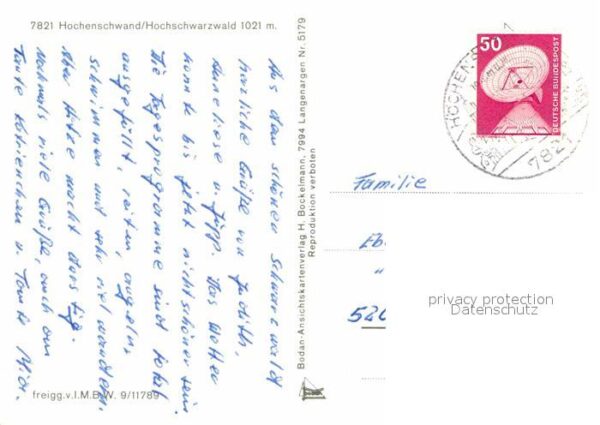 7821 Hochenschwand/Hochschwarzwald 1021 m.
Aus dem schönen Schwarzwald
herzliche Grüße von Judith,
Anneliese u. Jupp. Das Wetter
könnte bis jetzt nicht schöner sein.
Die Tagesprogramme sind total
ausgefüllt, reiten, angeln,
schwimmen und sehr viel wandern.
Aber Hitze macht durstig.
Nochmals viele Grüße, auch an
Tante Kätchen u. Tante
freigg.v.I.M.B.W. 9/11789
Bodan-Ansichtskartenverlag H. Bockelmann, 7994 Langenargen Nr. 5179
Reproduktion verboten
50
DEUTSCHE BUNDESPOST
HÖCHEN
782
Familie
Eb
"
520
privacy protection
Datenschutz